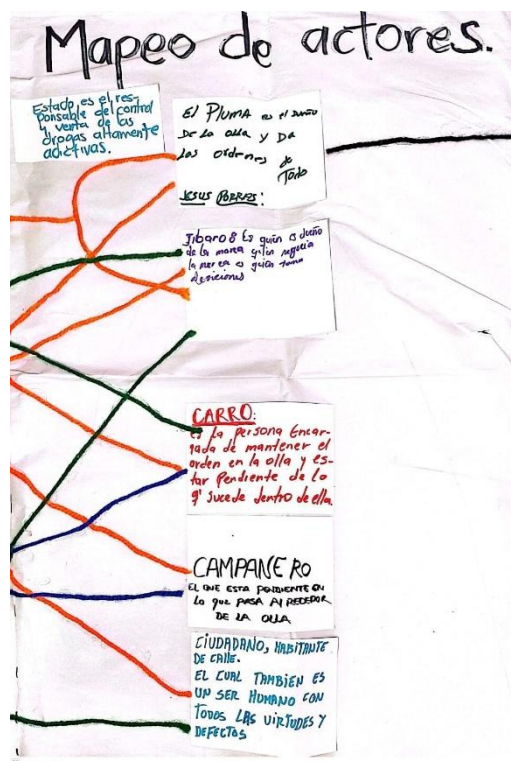 Mapeo de actores.
Estado, es el res-
ponsable del control
y venta de las
drogas altamente
adictivas.
El PLUMA es el dueño
De La olla y DA
Las ordenes de
Todo
JESUS PORRAS:
Jibaros Es quien es dueño
de la merca quien negocia
la merca es quien toma
desiciones
CARRO:
es la persona Encar-
gada de mantener el
orden en la olla y es-
tar Pendiente de lo
q' sucede dentro de ella.
CAMPANERO
EL QUE ESTA PENDIENTE EN
Lo que PASA ALREDEDOR
DE LA OLLA
CIUDADANO, HABITANTE
DE CALLE.
EL CUAL TAMBIEN ES
UN SER HUMANO CON
TODOS LAS VIRTUDES Y
DEFECTOS